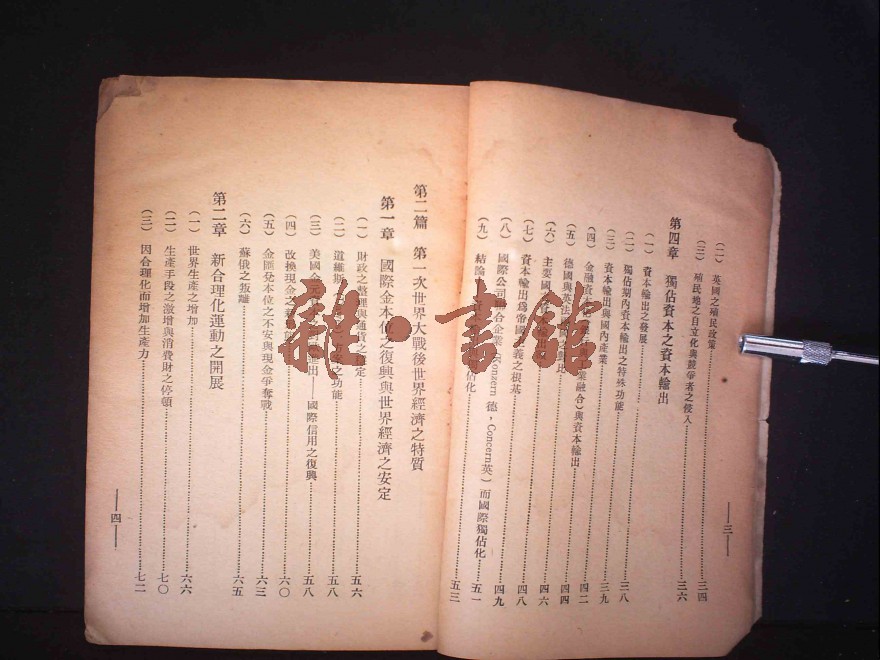 (二) 英國之殖民政策……三四
(三) 殖民地之自立化與競爭者之侵入
第四章 獨佔資本之資本輸出……三六
(一) 資本輸出之發展
(二) 獨佔期內資本輸出之特殊功能……三八
(三) 資本輸出與國內產業……三九
(四) 金融資本 業融合)與資本輸出……四二
(五) 德國與英法……四四
(六) 主要國……四六
(七) 資本輸出爲帝國主義之根基……四八
(八) 國際公司 合企業 (Konzern 德,Concern英) 而國際獨佔化……四九
……五一
(九) 結論 佔化……五三
——三——
第二篇 第一次世界大戰後世界經濟之特質
第一章 國際金本位之復興與世界經濟之安定
(一) 財政之整理與通貨之安定……五六
(二) 道維斯 之功能……五八
(三) 美國 出——國際信用之復興……五八
(四) 改換現金之……六〇
(五) 金匯兌本位之不安與現金爭奪戰……六三
(六) 蘇俄之叛離……六五
第二章 新合理化運動之開展
(一) 世界生產之增加……六六
(二) 生產手段之激增與消費財之停頓……七〇
(三) 因合理化而增加生產力……七二
——四——
雜·書館